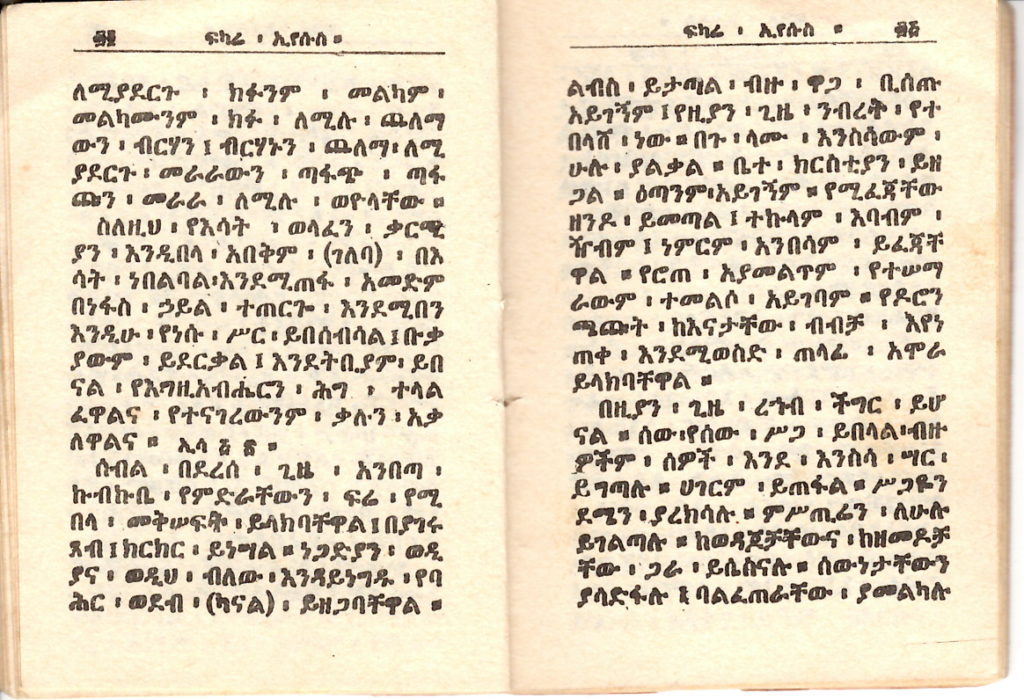 ፴፬ ፍካሬ ፡ ኢየሱስ ።
ለሚያደርጉ ፡ ክፉንም ፡ መልካም ፡
መልካሙንም ፡ ክፉ ፡ ለሚሉ ፡ ጨለማ
ውን ፡ ብርሃን ፤ ብርሃኑን ፡ ጨለማ ፡ ለሚ
ያደርጉ ፡ መራራውን ፡ ጣፋጭ ፡ ጣፋ
ጩን ፡ መራራ ፡ ለሚሉ ፡ ወዮላቸው ።
ስለዚህ ፡ የእሳት ፡ ወላፈን ፡ ቃርሚ
ያን ፡ እንዲበላ ፡ አበቅም ፡ (ገለባ) ፡ በእ
ሳት ፡ ነበልባል ፡ እንደሚጠፋ ፡ አመድም
በነፋስ ፡ ኃይል ፡ ተጠርጉ ፡ እንደሚበን
እንዲሁ ፡ የነሱ ፡ ሥር ፡ ይበሰብሳል ፤ ቡቃ
ያውም ፡ ይደርቃል ፤ እንደትቢያም ፡ ይበ
ናል ፡ የእግዚአብሔርን ፡ ሕግ ፡ ተላል
ፈዋልና ፡ የተናገረውንም ፡ ቃሉን ፡ አቃ
ለዋልና ። ኢሳ ፭ ፳ ።
ሰብል ፡ በደረሰ ፡ ጊዜ ፡ አንበጣ ፡
ኩብኩቤ ፡ የምድራቸውን ፡ ፍሬ ፡ የሚ
በላ ፡ መቅሠፍት ፡ ይላክባቸዋል ፤ በያገሩ
ጸብ ፤ ክርክር ፡ ይነግሣል ። ነጋድያን ፡ ወዲ
ያና ፡ ወዲህ ፡ ብለው ፡ እንዳይነግዱ ፡ የባ
ሕር ፡ ወደብ ፡ (ካናል) ፡ ይዘጋባቸዋል ።
ፍካሬ ፡ ኢየሱስ ። ፴፭
ልብስ ፡ ይታጣል ፡ ብዙ ፡ ዋጋ ፡ ቢሰጡ
አይገኝም ፤ የዚያን ፡ ጊዜ ፡ ንብረቱ ፡ የተ
በላሸ ፡ ነው ። በጉ ፡ ላሙ ፡ እንስሳውም ፡
ሁሉ ፡ ያልቃል ። ቤተ ፡ ክርስቲያን ፡ ይዘ
ጋል ። ዕጣንም ፡ አይገኝም ። የሚፈጃቸው
ዘንዶ ፡ ይመጣል ፤ ተኩላም ፡ እባብም ፡
ዥብም ፤ ነምርም ፡ አንበሳም ፡ ይፈጃቸ
ዋል ። የሮጠ ፡ አያመልጥም ፡ የተሠማ
ራውም ፡ ተመልሶ ፡ አይገባም ። የዶሮን
ጫጩት ፡ ከእናታቸው ፡ ብብቻ ፡ እየነ
ጠቀ ፡ እንደሚወስድ ፡ ጠላፊ ፡ አሞራ
ይላክባቸዋል ።
በዚያን ፡ ጊዜ ፡ ረኅብ ፡ ችግር ፡ ይሆ
ናል ። ሰው ፡ የሰው ፡ ሥጋ ፡ ይበላል ፡ ብዙ
ዎችም ፡ ሰዎች ፡ እንደ ፡ እንስሳ ፡ ሣር ፡
ይግጣሉ ። ሀገርም ፡ ይጠፋል ። ሥጋዬን
ደሜን ፡ ያረክሳሉ ። ምሥጢሬን ፡ ለሁሉ
ይገልጣሉ ። ከወዳጆቻቸውና ፡ ከዘመዶቻ
ቸው ፡ ጋራ ፡ ይሴስናሉ ። ሰውነታቸውን
ያሳድፋሉ ፤ ባልፈጠራቸው ፡ ያመልካሉ